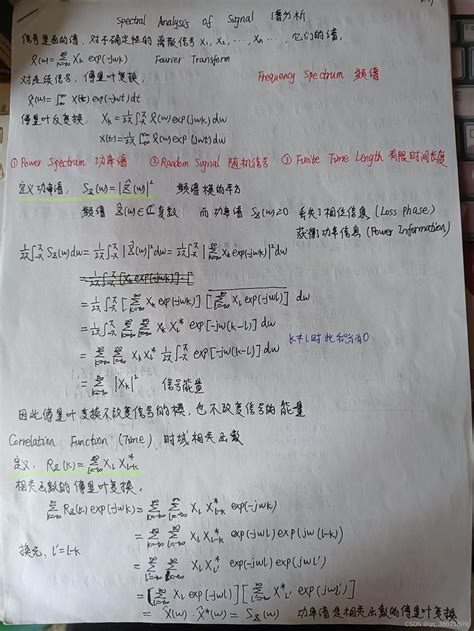 Spectral Analysis of Signal 谱分析
信号里面的谱, 对于确定性的离散信号 X₁, X₂, ..., Xₙ ..., 它们的谱,
X̂(w) = Σ_{k=-∞}^{∞} X_k exp(-jwk) Fourier Transform
对连续信号, 傅里叶变换, Frequency Spectrum 频谱
X̂(w) = ∫_{-∞}^{∞} X(t) exp(-jwt) dt
傅里叶反变换, X_k = 1/2π ∫_{-π}^{π} X̂(w) exp(jwk) dw
X(t) = 1/2π ∫_{-∞}^{∞} X̂(w) exp(jwt) dw
① Power Spectrum 功率谱 ② Random Signal 随机信号 ③ Finite Time Length 有限时间长度
定义功率谱, S_Z(w) = |Ẑ(w)|² 频谱模的平方
频谱 Ẑ(w) ∈ ℂ 复数 而功率谱 S_Z(w) ≥ 0 丢失了相位信息 (Loss phase)
获得功率信息 (Power Information)
1/2π ∫_{-π}^{π} S_Z(w) dw = 1/2π ∫_{-π}^{π} |Ẑ(w)|² dw = 1/2π ∫_{-π}^{π} |Σ_{k=-∞}^{∞} X_k exp(-jwk)|² dw
= 1/2π ∫_{-π}^{π} [Σ_{k=-∞}^{∞} X_k exp(-jwk)] [Σ_{l=-∞}^{∞} X_l exp(-jwl)] dw
= 1/2π ∫_{-π}^{π} Σ_{k=-∞}^{∞} Σ_{l=-∞}^{∞} X_k X_l* exp[-jw(k-l)] dw
= Σ_{k=-∞}^{∞} Σ_{l=-∞}^{∞} X_k X_l* 1/2π ∫_{-π}^{π} exp[-jw(k-l)] dw k≠l时此积分为0
= Σ_{k=-∞}^{∞} |X_k|² 信号能量
因此傅里叶变换不改变信号的模, 也不改变信号的能量
Correlation Function (Time), 时域相关函数
定义, R_Z(k) = Σ_{l=-∞}^{∞} X_l X*_{l-k}
相关函数的傅里叶变换,
Σ_{k=-∞}^{∞} R_Z(k) exp(-jwk) = Σ_{k=-∞}^{∞} Σ_{l=-∞}^{∞} X_l X*_{l-k} exp(-jwk)
= Σ_{k=-∞}^{∞} Σ_{l=-∞}^{∞} X_l X*_{l-k} exp(-jwl) exp(jw(l-k))
换元, l'=l-k = Σ_{l'=-∞}^{∞} Σ_{l=-∞}^{∞} X_l X*_{l'} exp(-jwl) exp(jwl')
= [Σ_{l=-∞}^{∞} X_l exp(-jwl)] [Σ_{l'=-∞}^{∞} X*_{l'} exp(jwl')]
= X̂(w) · X̂*(w) = S_Z(w) 功率谱是相关函数的傅里叶变换